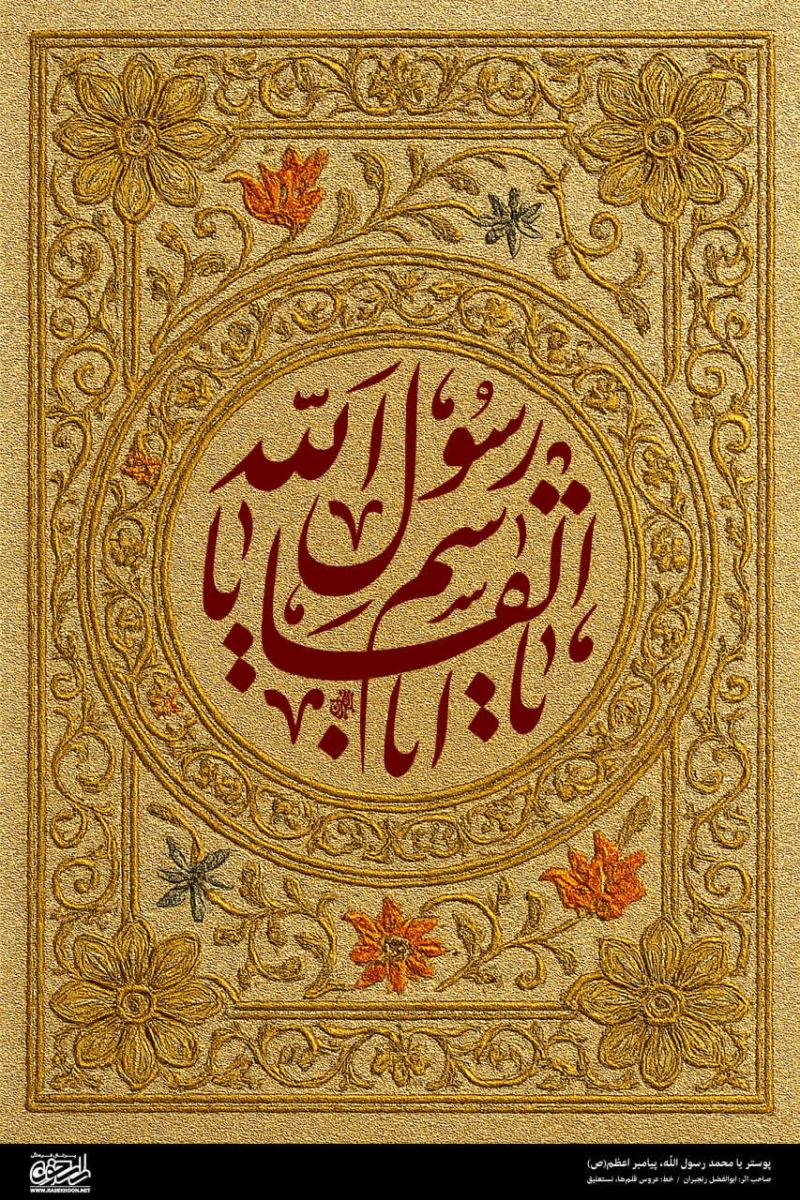 یا اباالقاسم
یا رسول الله
پوستر یا محمد رسول الله، پیامبر اعظم(ص)
صاحب اثر: ابوالفضل رنجبران / خط: عروس قلم‌ها، نستعلیق
راسخون
WWW.RASEKHOON.NET